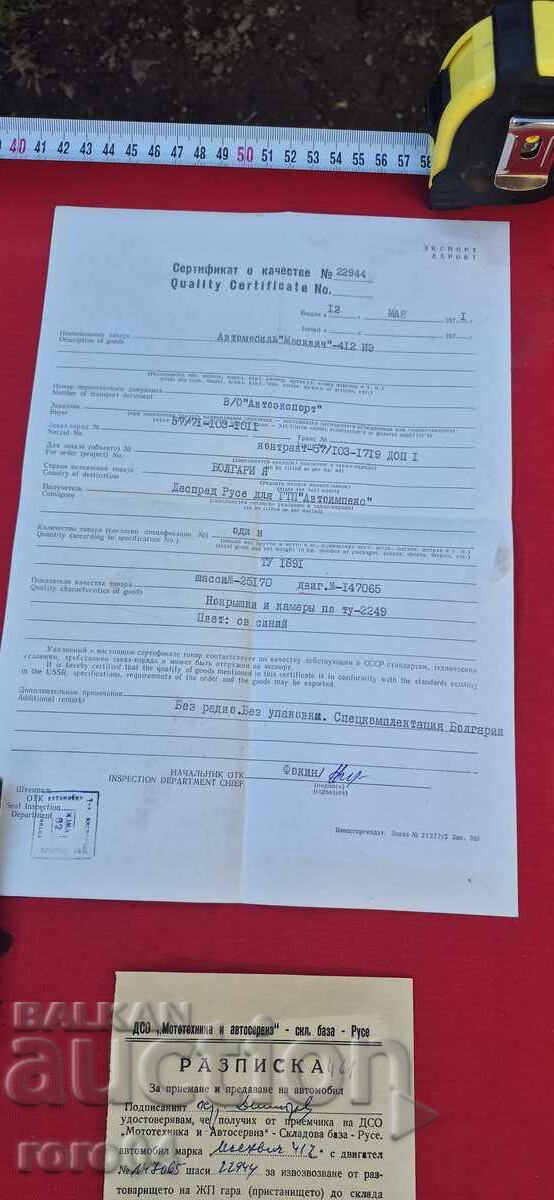 40 41 42 43 44 45 46 47 48 49 50 51 52 53 54 55 56 57 58
ЭКСПОРТ
EXPORT
Сертификат о качестве № 22944
Quality Certificate No.
Выдан « 12 МАЯ 197 1
Issued « 197
Наименование товара Автомобиль "Москвич"-412 ИЭ
Description of goods
Номер перевозочного документа
Number of transport document
Заказчик В/О "Автоэкспорт"
Buyer
Заказ наряд № 57/71-103-1011 Транс №
Для заказа (объекта) № контракт-57/103-1719 ДОП I
For order (project) No.
Страна назначения товара БОЛГАРИ Я
Country of destination
Получатель Деспред Русе для ГТП "Автоимпекс"
Consignee
Количество товара (согласно спецификации №) оди н
Quantity (according to specification No.)
ТУ 1891
Показатели качества товара шасси№-25170 двиг.№-147065
Quality characteristics of goods
Покрышки и камеры по ту-2249
Цвет: св синий
Указанный в настоящем сертификате товар соответствует по качеству действующим в СССР стандартам, техническим
условиям, требованиям заказ-наряда и может быть отгружен на экспорт.
It is hereby certified that the quality of goods mentioned in this certificate is in conformity with the standards existing
in the USSR, specifications, requirements of the order and the goods may be exported.
Дополнительные примечания Без радио.Без упаковки. Спецкомплектация Болгарии
Additional remarks
НАЧАЛЬНИК ОТК Фокин/
INSPECTION DEPARTMENT CHIEF (подпись)
(signature)
Штемпель
ОТК
Seal Inspection
Department
82
Внешторгиздат. Заказ № 21377/2
BALKAN
auction
roro
ДСО „Мототехника и автосервиз" - скл. база - Русе
РАЗПИСКА
За приемане и предаване на автомобил
Подписаният
удостоверявам, че получих от приемчика на ДСО
„Мототехника и Автосервиз" - Складова база - Русе.
автомобил марка Москвич 412 с двигател
№ 147065 шаси 22944 за извозвозване от раз-
товарището на ЖП гара (пристанището) до склада